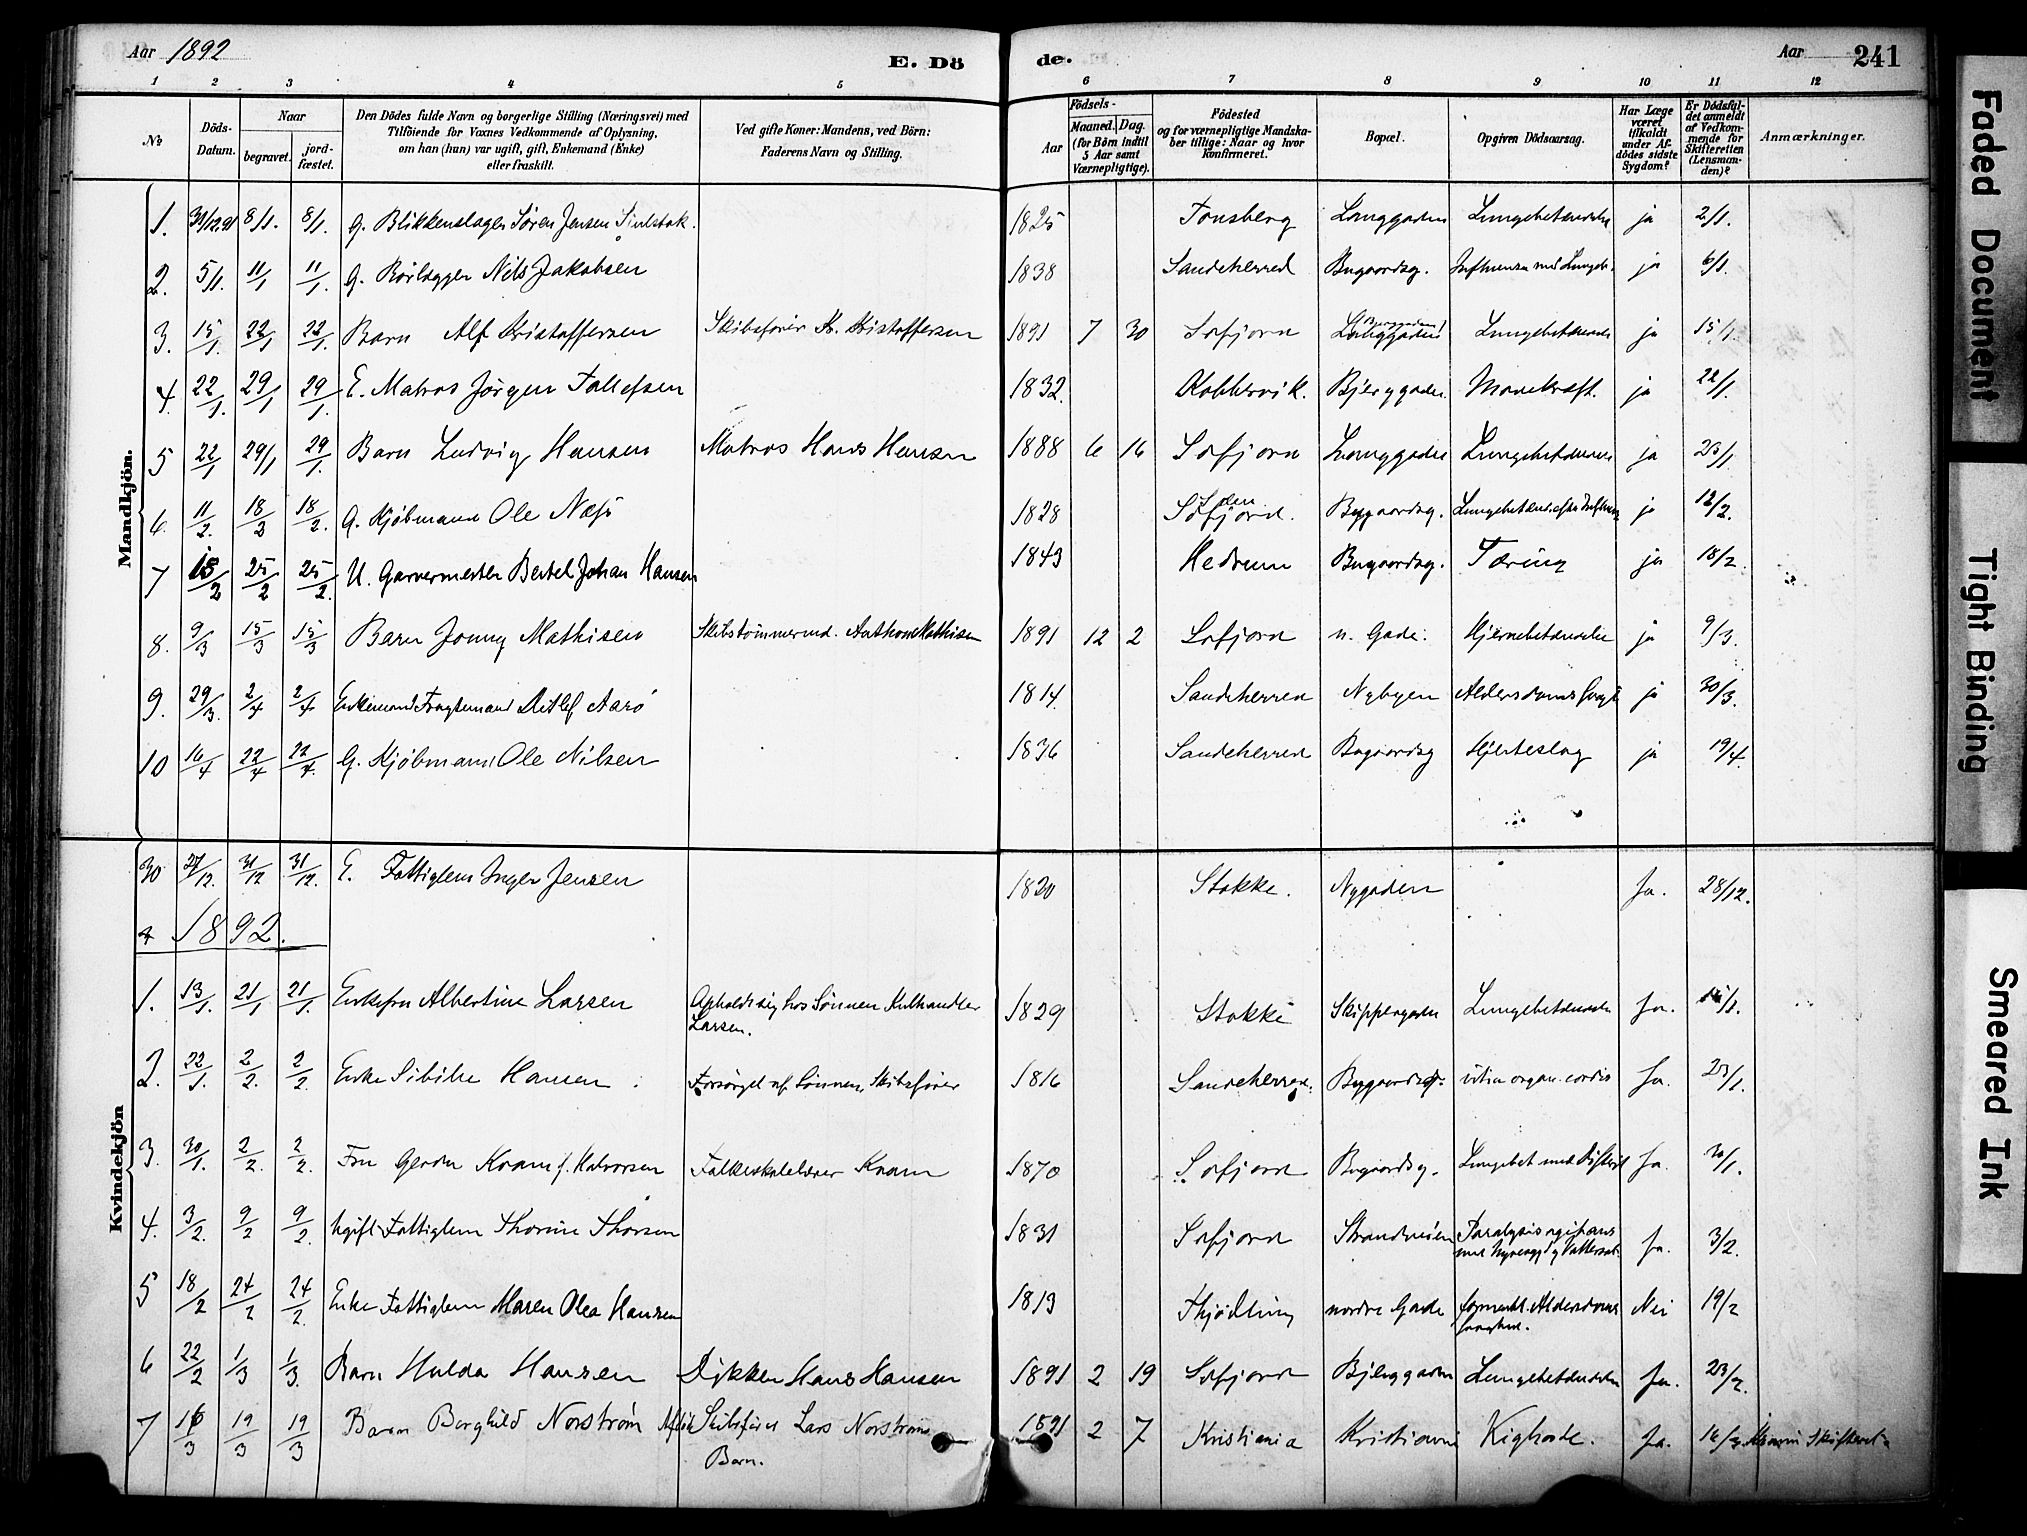 Aar 1892 E. Dö de. Aar 241
1 2 3 4 5 6 7 8 9 10 11 12
No Döds-Datum. Naar begravet. jord-fæstet. Den Dödes fulde Navn og borgerlige Stilling (Næringsvei) med Tilföiende for Voxnes Vedkommende af Oplysning, om han (hun) var ugift, gift, Enkemand (Enke) eller fraskilt. Ved gifte Koner: Mandens, ved Börn: Faderens Navn og Stilling. Födsels- Aar Maaned. Dag. (for Börn indtil 5 Aar samt Værnepligtige). Födested og for værnepligtige Mandskaber tillige: Naar og hvor konfirmeret. Bopæl. Opgiven Dödsaarsag. Har Læge været tilkaldt under Afdödes sidste Sygdom? Er Dödsfaldet anmeldt af Vedkommende for Skifteretten (Lensmanden)? Anmærkninger.
Mandkjön.
1. 31/12 91 8/1. 8/1. G. Blikkenslager Sören Jensen 1825 Tønsberg Langgaden Lungebetændelse ja 2/1.
2. 5/1. 11/1 11/1. G. Rörlægger Nils Jakobsen 1838 Sandeherred Bugaardsg. Influenza med Lungeb. ja 6/1.
3. 15/1. 22/1 22/1. Barn Alf Kristoffersen Skibsförer Kr. Kristoffersen 1891 7 30 Sofjord Langgaden Lungebetændelse ja 15/1.
4. 22/1. 29/1 29/1. E. Matros Jörgen Tollefsen 1832. Kobbervik. Bjerggaden Mavekræft. ja 22/1.
5 22/1 29/1 29/1. Barn Ludvig Hansen Matros Hans Hansen 1888 6 16 Sofjord Langgaden Lungebetændelse ja 23/1.
6. 11/2. 18/2 18/2. G. Kjöbmand Ole Næss 1828 Sofjord. Bugaardsg. Lungebetænd. efter Influenza ja 12/2.
7 15/2 25/2 25/2. U. Garvermester Bertel Johan Hansen 1843 Hedrum Bugaardsg. Tæring ja 18/2.
8. 9/3 15/3 15/3 Barn Jonny Mathisen Skibstömmermd. Anthon Mathisen 1891 12 2 Sofjord n. Gade. Hjernebetændelse ja 9/3.
9. 29/3. 2/4 2/4 Enkemand Fragtemand Ditlef Aarö 1814. Sandeherred Nybyen Alderdomssvagh. ja 30/3.
10 16/4 22/4 22/4. G. Kjöbmand Ole Nilsen 1836 Sandeherred Bugaardsg Hjerteslag ja 19/4.
Kvindekjön
30 27/12. 31/12 31/12. E. Fattiglem Inger Jensen 1820 Stokke. Nygaden Ja. 28/12.
1892.
1. 13/1. 21/1 21/1. Enkefru Albertine Larsen Opholdt sig hos Sönnen Kulhandler
Larsen. 1829 Stokke Skippergaden Lungebetændelse Ja. 15/1.
2. 22/1. 2/2. 2/2. Enke Sibille Hansen Forsörget af Sönnen, Skibsförer 1816 Sandeherred. Bugaardsg. vitia organ. cordis Ja. 23/1.
3. 30/1. 2/2. 2/2. Fru Gerda Kram f. Halvorsen Folkeskolelærer Kram 1870 Sofjord Bugaardsg. Lungebet. med Difterit Ja. 30/1.
4. 3/2. 9/2 9/2. Ugift Fattiglem Thorine Thorsen 1831 Sofjord Strandveien Paralysis agitans
med Nyresygd. og Vattersot. Ja. 3/2.
5 18/2 24/2 24/2. Enke Fattiglem Maren Olea Hansen 1813 Thjödling nordre Gade formentl. Alderdoms
svaghed. Nei 19/2
6 22/2 1/3 1/3. Barn Hulda Hansen Dykker Hans Hansen 1891 2 19 Sofjord Bjerggaden Lungebetændelse Ja. 23/2.
7 16/3 19/3 19/3 Barn Borghild Norström Skibsförer Lars Norströms
Barn. 1891 2 7 Kristiania Kristiania Kighoste. Ja. 16/3 Skifteret
Faded Document
Tight Binding
Smeared Ink